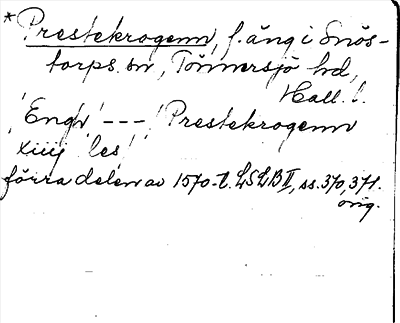 *Prestekrogenn, f. äng i Snös-
torps sn, Tönnersjö hd,
Hall. l.
'Engh' --- 'Prestekrogenn
xiiij les'
förra delen av 1570-t. LSLB II, ss. 370, 371.
orig.